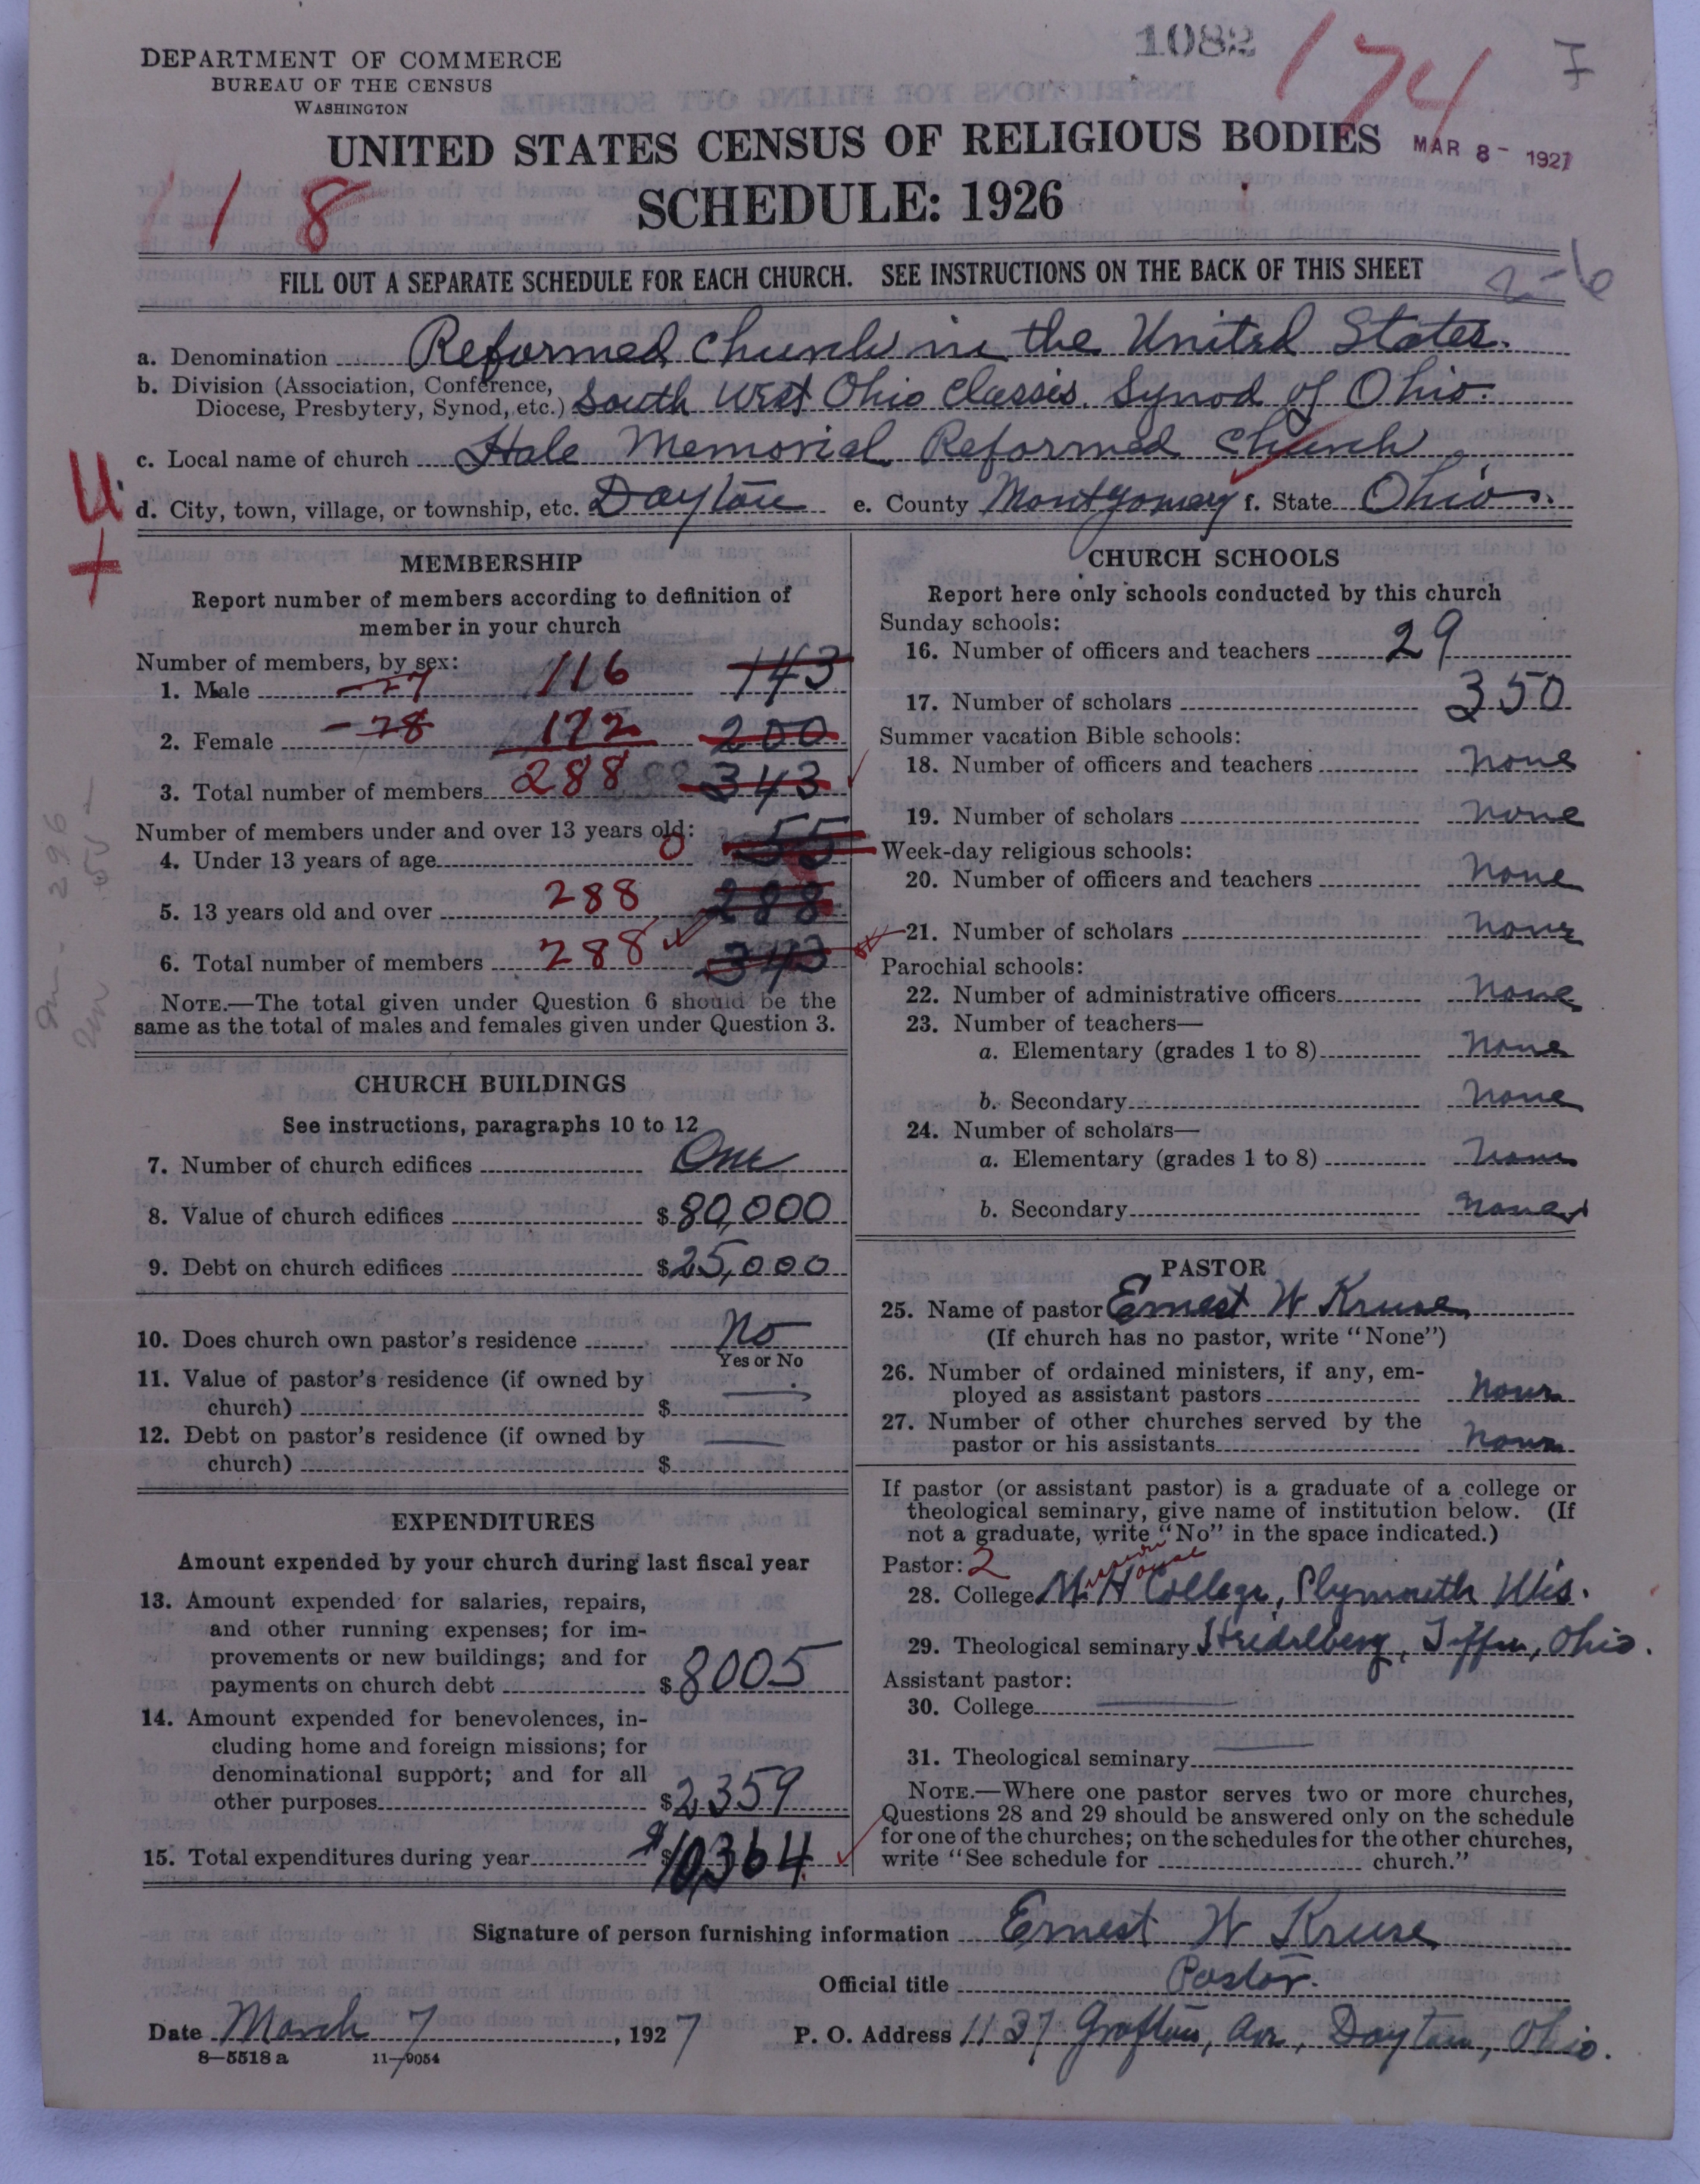 1082
174
DEPARTMENT OF COMMERCE
BUREAU OF THE CENSUS
WASHINGTON
UNITED STATES CENSUS OF RELIGIOUS BODIES
MAR 8 - 1927
118
SCHEDULE: 1926
FILL OUT A SEPARATE SCHEDULE FOR EACH CHURCH. SEE INSTRUCTIONS ON THE BACK OF THIS SHEET
2-6
a. Denomination Reformed Church in the United States.
b. Division (Association, Conference,
Diocese, Presbytery, Synod, etc.) South West Ohio Classis. Synod of Ohio.
c. Local name of church Hale Memorial Reformed Church
d. City, town, village, or township, etc. Dayton e. County Montgomery f. State Ohio.
MEMBERSHIP
Report number of members according to definition of
member in your church
Number of members, by sex:
1. Male -27 116 143
2. Female -28 172 200
3. Total number of members 288 343
Number of members under and over 13 years old:
4. Under 13 years of age 0 55
5. 13 years old and over 288 288
6. Total number of members 288 343
NOTE.—The total given under Question 6 should be the
same as the total of males and females given under Question 3.
CHURCH BUILDINGS
See instructions, paragraphs 10 to 12
7. Number of church edifices One
8. Value of church edifices $ 80,000
9. Debt on church edifices $ 25,000
10. Does church own pastor's residence No
Yes or No
11. Value of pastor's residence (if owned by
church) $
12. Debt on pastor's residence (if owned by
church) $
EXPENDITURES
Amount expended by your church during last fiscal year
13. Amount expended for salaries, repairs,
and other running expenses; for im-
provements or new buildings; and for
payments on church debt $ 8005
14. Amount expended for benevolences, in-
cluding home and foreign missions; for
denominational support; and for all
other purposes $ 2359
15. Total expenditures during year $ $10,364
CHURCH SCHOOLS
Report here only schools conducted by this church
Sunday schools:
16. Number of officers and teachers 29
17. Number of scholars 350
Summer vacation Bible schools:
18. Number of officers and teachers none
19. Number of scholars none
Week-day religious schools:
20. Number of officers and teachers none
21. Number of scholars none
Parochial schools:
22. Number of administrative officers none
23. Number of teachers—
a. Elementary (grades 1 to 8) none
b. Secondary none
24. Number of scholars—
a. Elementary (grades 1 to 8) none
b. Secondary none
PASTOR
25. Name of pastor Ernest W Kruse
(If church has no pastor, write "None")
26. Number of ordained ministers, if any, em-
ployed as assistant pastors none
27. Number of other churches served by the
pastor or his assistants none
If pastor (or assistant pastor) is a graduate of a college or
theological seminary, give name of institution below. (If
not a graduate, write "No" in the space indicated.)
Pastor: 2
28. College M. H House College, Plymouth Wis.
29. Theological seminary Heidelberg, Tiffin, Ohio.
Assistant pastor:
30. College
31. Theological seminary
NOTE.—Where one pastor serves two or more churches,
Questions 28 and 29 should be answered only on the schedule
for one of the churches; on the schedules for the other churches,
write "See schedule for church."
Signature of person furnishing information Ernest W Kruse
Official title Pastor.
Date March 7, 1927 P. O. Address 1137 Grafton Ave, Dayton, Ohio.
8—5518 a 11—9054